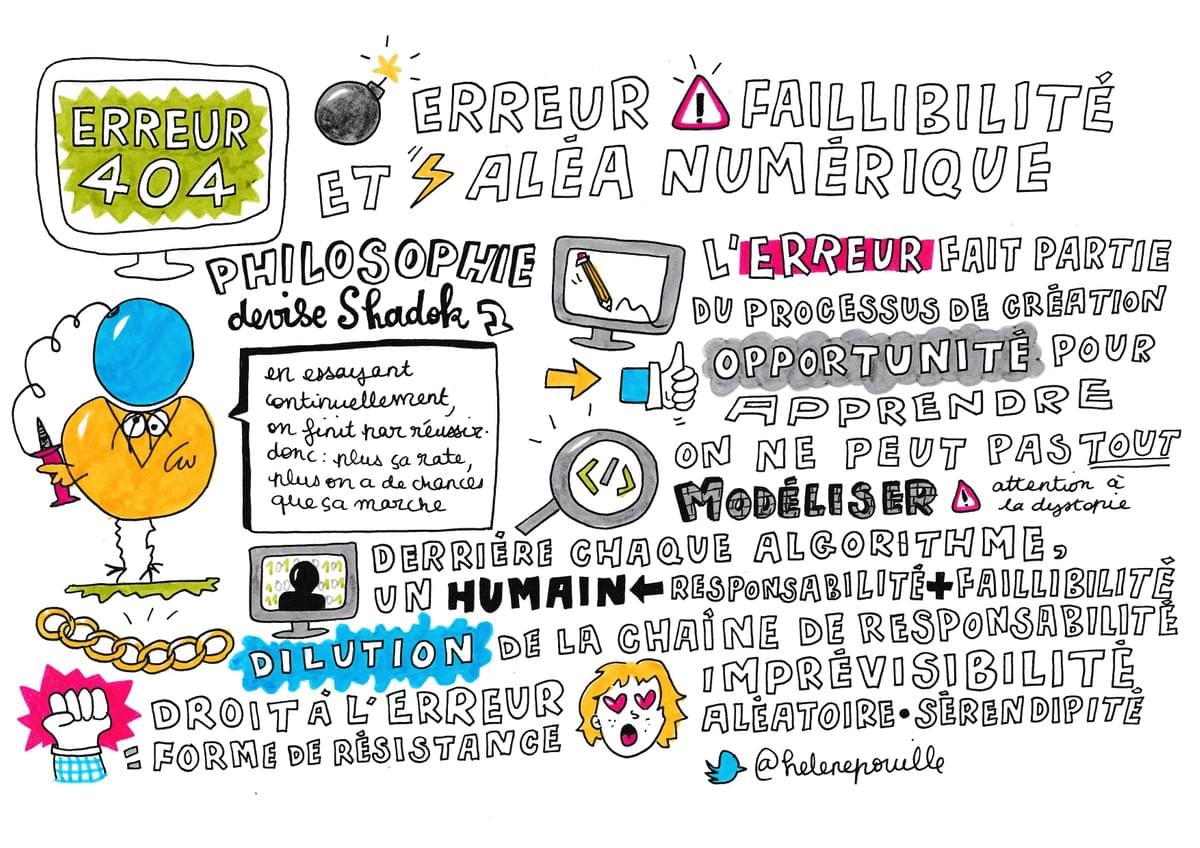 ERREUR
404
ERREUR ! FAILLIBILITÉ
ET ALÉA NUMÉRIQUE
PHILOSOPHIE
devise Shadok
en essayant
continuellement,
on finit par réussir.
donc : plus ça rate,
plus on a de chances
que ça marche
L'ERREUR FAIT PARTIE
DU PROCESSUS DE CRÉATION
OPPORTUNITÉ POUR
APPRENDRE
</>
ON NE PEUT PAS TOUT
MODÉLISER ! attention à
la dystopie
DERRIÈRE CHAQUE ALGORITHME,
UN HUMAIN ← RESPONSABILITÉ + FAILLIBILITÉ
DILUTION DE LA CHAÎNE DE RESPONSABILITÉ
DROIT À L'ERREUR
= FORME DE RÉSISTANCE
IMPRÉVISIBILITÉ
ALÉATOIRE • SÉRENDIPITÉ
@helenepouille